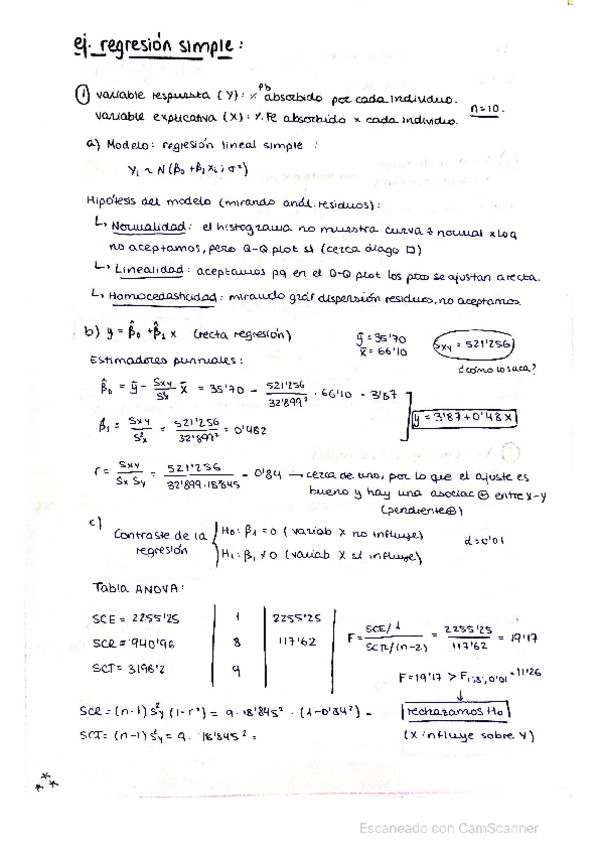 ej. regresión simple:
① variable respuesta (Y): % Pb absorbido por cada individuo.
variable explicativa (X): % Fe absorbido x cada individuo.
n=10.
a) Modelo: regresión lineal simple:
Yi ~ N(β0 + β1 xi ; σ²)
Hipótesis del modelo (mirando anál. residuos):
↳ Normalidad: el histograma no muestra curva normal x lo q
no aceptamos, pero Q-Q plot sí (cerca diago □)
↳ Linealidad: aceptamos pq en el Q-Q plot los ptos se ajustan a recta.
↳ Homocedasticidad: mirando gráf dispersión residuos, no aceptamos.
b) y = β̂0 + β̂1 x (recta regresión)
ȳ = 35'70
x̄ = 66'10
Sxy = 521'256
¿cómo lo saca?
Estimadores puntuales:
β̂0 = ȳ - Sxy/S²x x̄ = 35'70 - 521'256/32'899² · 66'10 = 3'87
β̂1 = Sxy/S²x = 521'256/32'899² = 0'482
y = 3'87 + 0'48 x
r = Sxy/Sx Sy = 521'256/32'899·18'845 = 0'84 → cerca de uno, por lo que el ajuste es
bueno y hay una asociac ⊕ entre x-y
(pendiente ⊕)
c) Contraste de la regresión
H0: β1 = 0 (variab X no influye)
H1: β1 ≠ 0 (variab X sí influye)
α = 0'01
Tabla ANOVA:
SCE = 2255'25 | 1 | 2255'25
SCR = 940'96 | 8 | 117'62
SCT = 3196'2 | 9
F = SCE/1 / SCR/(n-2) = 2255'25/117'62 = 19'17
F = 19'17 > F1;8;0'01 = 11'26
↓
rechazamos H0
(X influye sobre Y)
SCR = (n-1) S²y (1-r²) = 9 · 18'845² · (1-0'84²) =
SCT = (n-1) S²y = 9 · 18'845² =
Escaneado con CamScanner